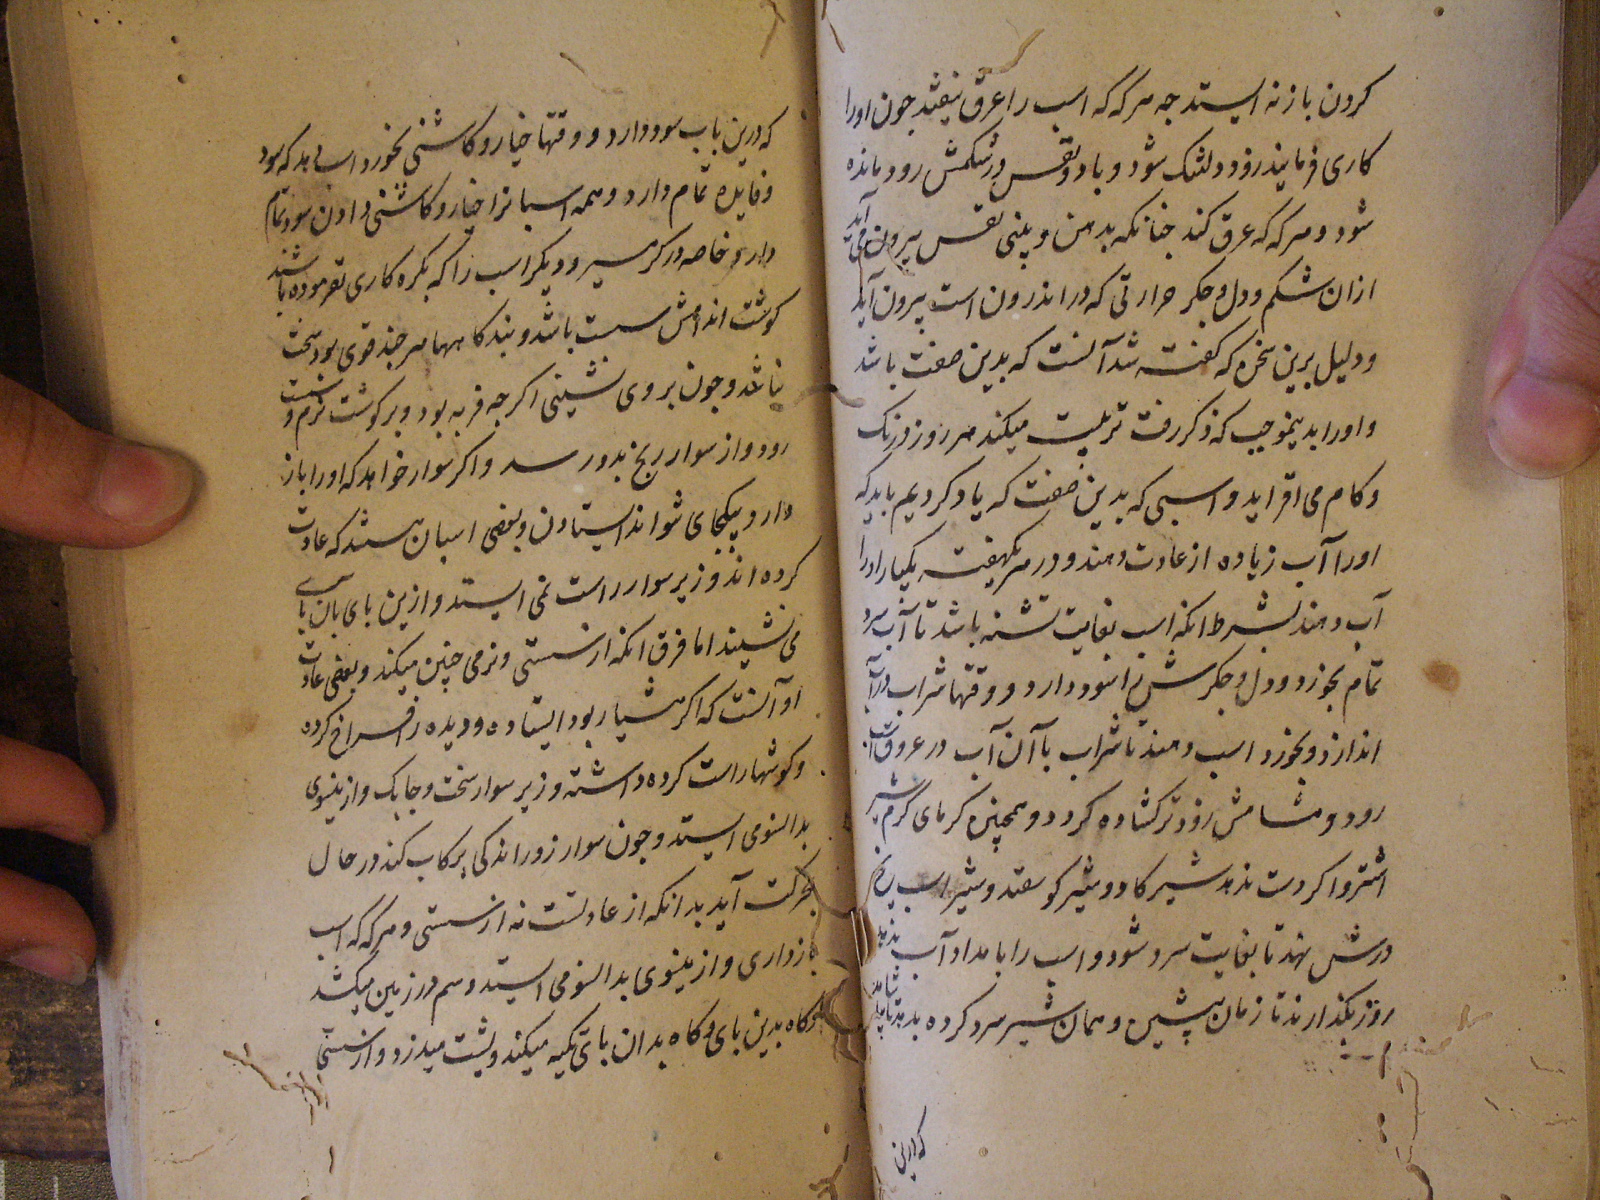 کردن باز نه ایستد جه هرکه که اسب را عرق نیفتد جون اورا
کاری فرمایند زود دلتنک شود و باد و نفس در شکمش رود مانده
شود و هرکه که عرق کند جنانکه بدهن و بینی نفس بیرون می آید
ازان شکم و دل و جکر حرارتی که در اندرون است بیرون آید
و دلیل برین سخن که کفته شد آنست که بدین صفت باشد
و اورا بدینموجب که ذکر رفت تربیت میکند هر روز در تک
و کام می افزاید و اسبی که بدین صفت که یاد کردیم باید که
اورا آب زیاده از عادت دهند و در هر یکهفته یکبار اورا
آب دهند بشرط آنکه اسب بغایت تشنه باشد تا آب سرد
تمام بخورد و دل و جکرش را سود دارد و وقتها شراب در آب
اندازد و بخورد اسب دهند تا شراب با آن آب در عروق
رود و مشامش زودتر کشاده کردد و همچنین کرمای کرم شیر
اشتر و اکر دست ندهد شیر کاو و شیر کوسفند و شیر اسب یخ
درش نهند تا بغایت سرد شود و اسب را بامداد آب ندهند
روز بکذارند تا زمان پیشین و همان شیر سرد کرده بدهند
که درین
که درین باب سود دارد و وقتها خیار و کاشنی بخورد اسب دهد که سود
و فایده تمام دارد و همه اسبانرا خیار و کاشنی دادن سود تمام
دارد خاصه در کرمسیر و دیکر اسب را که بکره کاری نفرموده باشند
کوشت اندامش سست باشد و بندکاهها هر جند قوی بود سخت
نباشد و جون بر وی نشینی اکر جه فربه بود و بر کوشت نرم و سست
رود و از سوار رنج بدو رسد و اکر سوار خواهد که اورا باز
دارد و بیکجای نتواند ایستادن و بعضی اسبان هستند که عادت
کرده اند و زیر سوار راست نمی ایستد و ازین بای بان بای
می نشیند اما فرق آنکه از سستی و نرمی جنین میکند و بعضی عادت
او آنست که اکر هشیار بود ایستاده و دیده را فراخ کرده
و کوشها راست کرده داشته و زیر سوار سخت و جابک و ازینسوی
بدانسو می ایستد و جون سوار زور اندکی بر کاب کند در حال
بحرکت آید بدانکه از عادتست نه از سستی و هرکه که اسب
بازداری و ازینسوی بدانسو می ایستد و سم در زمین میکشد
و کاه بدین بای و کاه بدان بای تکیه میکند و پشت میدزدد و از سستی